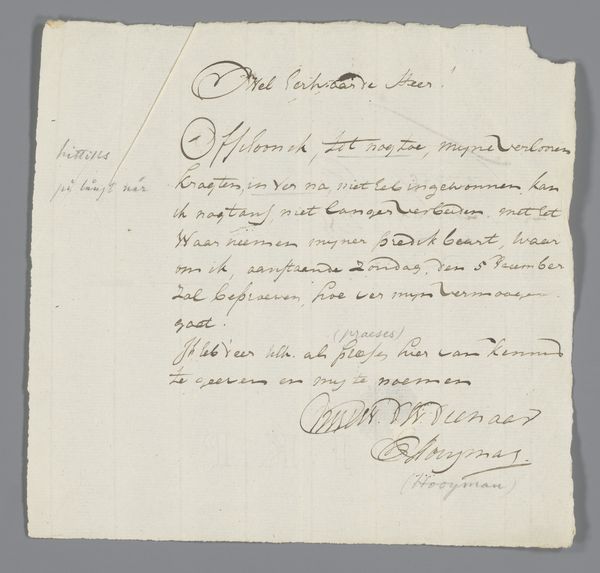 Wel Eerwaarde Heer!
Offschoon ik, tot nog toe, mijne verloorene
kragten, in ver na, niet heb ingewonnen kan
ik nogtans, niet langer verbeiden, met het
Waarneemen mijner predikbeurt, waar
om ik, aanstaende Zondag, den 5 December
zal beproeven, hoe ver mijn vermoogen
gaat.
(praeses)
Ik heb de eer als preses, hier van kennis
te geeven en mij te noemen
UWEW. DW. dienaar
Hooyman
(Hooyman)
hittills
på långt när